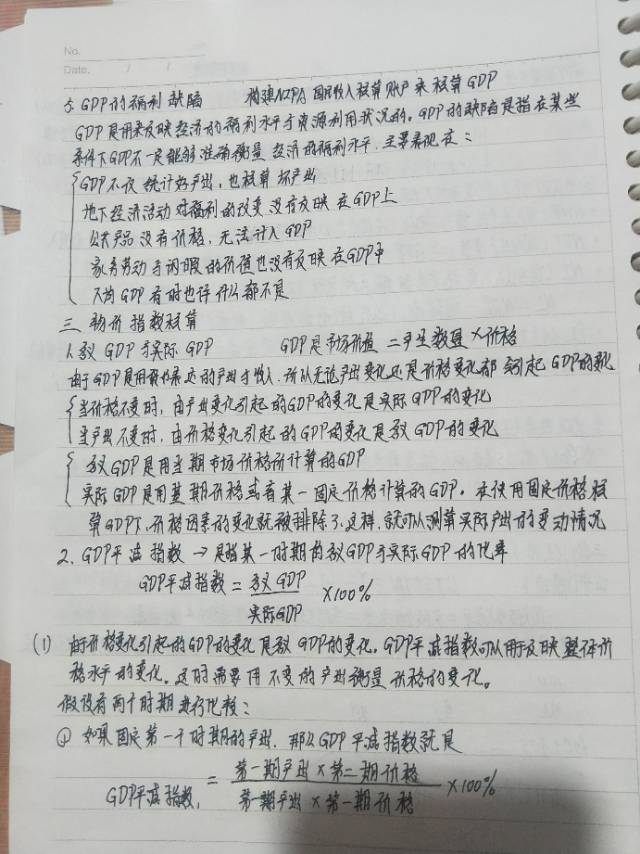 No.
Date.   /   /
5 GDP的福利缺陷   构建NIPA 国民收入核算账户来核算GDP
GDP是用来反映经济的福利水平与资源利用状况的。GDP的缺陷是指在某些
条件下GDP不一定能够准确衡量经济的福利水平，主要表现在：
GDP不仅统计好产出，也核算坏产出
地下经济活动对福利的改变没有反映在GDP上
公共产品没有价格，无法计入GDP
家务劳动与闲暇的价值也没有反映在GDP中
人均GDP有时也许什么都不是
三 物价指数核算
1. 名义GDP与实际GDP   GDP是市场价值 = 产出数量×价格
由于GDP是用货币表达的产出与收入，所以无论产出变化还是价格变化都会引起GDP的变化
当价格不变时，由产出变化引起的GDP的变化是实际GDP的变化
当产出不变时，由价格变化引起的GDP的变化是名义GDP的变化
名义GDP是用当期市场价格所计算的GDP
实际GDP是用基期价格或者某一固定价格计算的GDP。在使用固定价格核
算GDP下，价格因素的变化就被排除了，这样，就可以测算实际产出的变动情况
2. GDP平减指数 → 是指某一时期的名义GDP与实际GDP的比率
GDP平减指数 = 名义GDP / 实际GDP ×100%
(1) 由于价格变化引起的GDP的变化是名义GDP的变化。GDP平减指数可以用于反映整体价
格水平的变化。这时需要用不变的产出衡量价格的变化。
假设有两个时期进行比较：
① 如果固定第一个时期的产出，那么GDP平减指数就是
GDP平减指数₁ = 第一期产出×第二期价格 / 第一期产出×第一期价格 ×100%